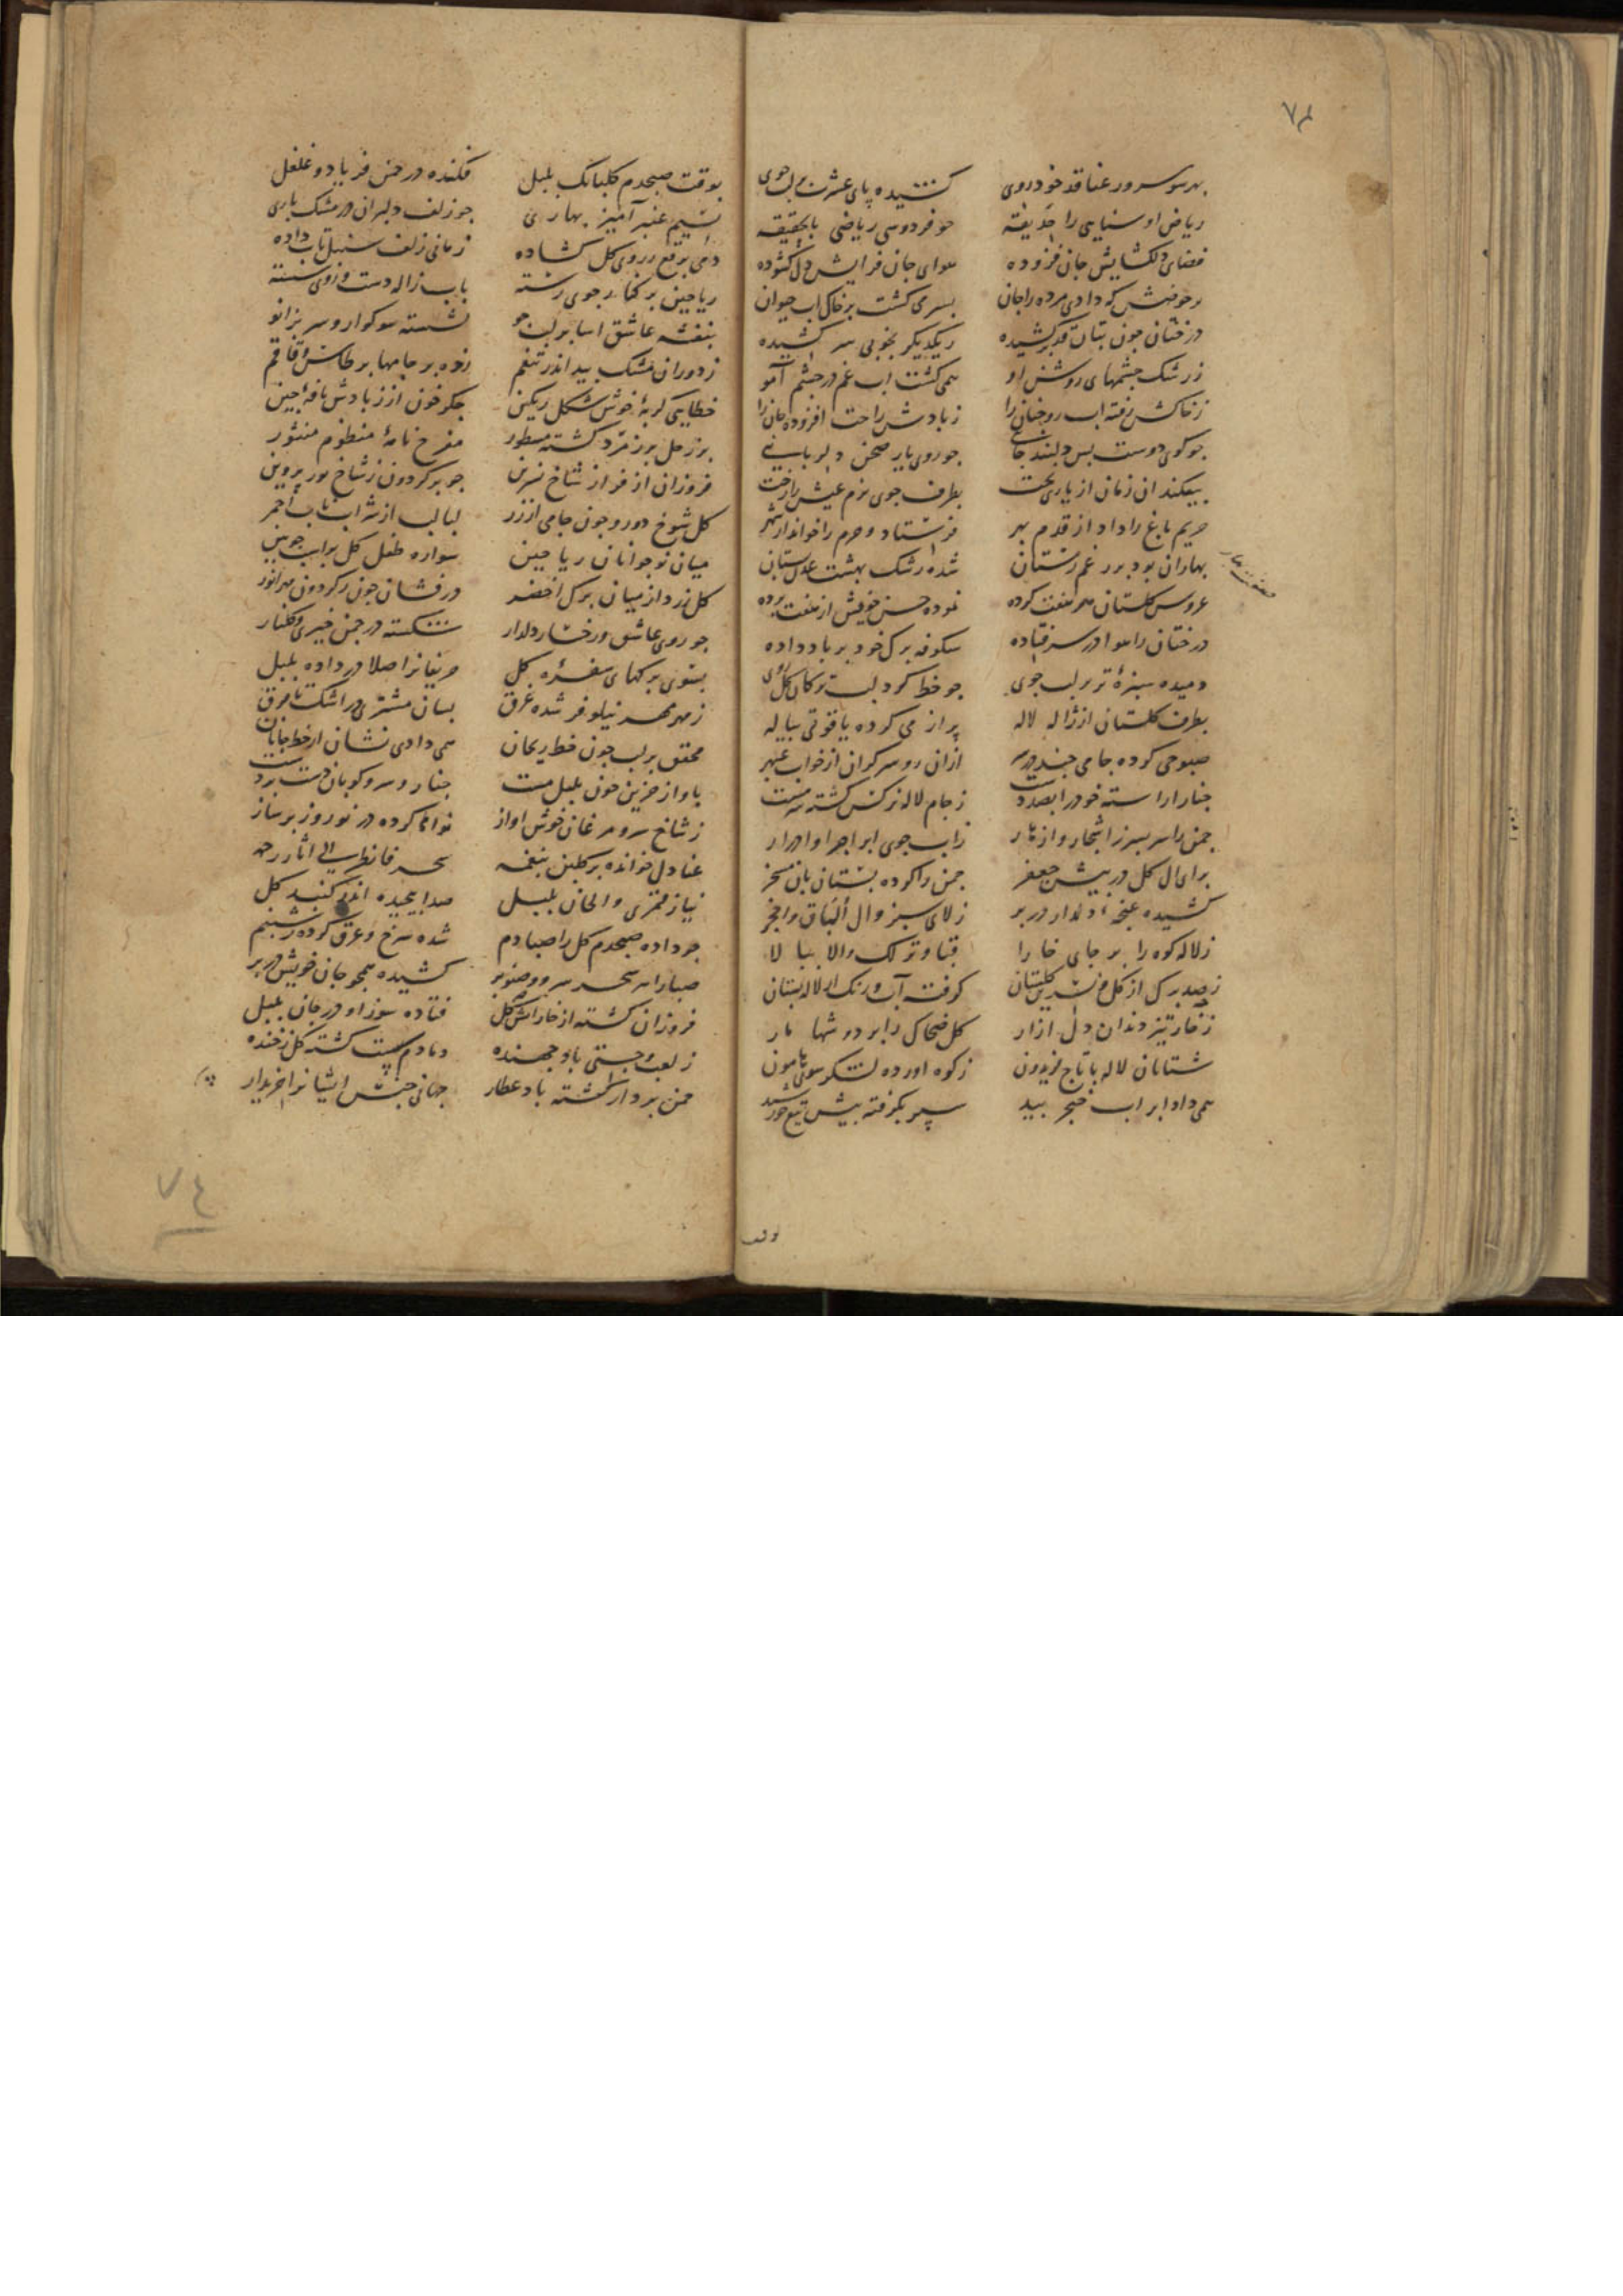 ۷۴
بهر سو سرو رعنا قد خودروی کشیده پای عشرت بر لب جوی
ریاض او سنایی را حدیقه چو فردوسی ریاضی بالحقیقه
فضای دلکشایش جان فزوده هوای جان فزایش دل کشوده
که دادی مرده را جان بسر می کشت بر خاک اب حیوان
درختان چون بتان قد برکشیده زیکدیکر بخوبی سر کشیده
ز رشک چشمهای روشن او همی کشت اب غم در چشم آهو
ز خاکش رفته اب روجنان را ز بادش راحت افزوده جان را
چو کوی دوست بس دلبند جایی چو روی یار صحن دلربایی
بیفکند ان زمان از یاری بخت بطرف جوی بزم عیش را رخت
حریم باغ را داد از قدم بهر فرستاد و حرم را خواند از شهر
صفت بهار
بهاران بود بر رغم زمستان شده رشک بهشت عدن بستان
عروس کلستان هر هفت کرده نموده حسن خویش از هفت پرده
درختان را هوا در سر فتاده شکوفه برک خود بر باد داده
دمیده سبزهٔ تر بر لب جوی چو خط کرد لب ترکان کلروی
بطرف کلستان از ژاله لاله پر از می کرده یاقوتی پیاله
صبوحی کرده جامی چند در سر ازان رو سر کران از خواب عبهر
چنار اراسته خود را بصد دست ز جام لاله نرکس کشته سرمست
چمن را سر بسر ز اشجار و ازهار ز اب جوی ابر اجرا و ادرار
برای ال کل در پیش جعفر چمن را کرده بستان بان مسخر
کشیده غنچهٔ دلدار در بر ز لای سبز وال
ز لاله کوه را بر جای خارا قبا و ترلک والا ببالا
ز صد برک از کل و نسرین کلستان کرفته آب و رنک از لاله بستان
ز خار تیز دندان دل ازار کل ضحاک را بر دوشها مار
شتابان لاله با تاج فریدون ز کوه اورده لشکر سوی هامون
همی داد ابر اب خنجر بید سپر بکرفته پیش تیغ خورشید
بوقت صبحدم کلبانک بلبل فکنده در چمن فریاد و غلغل
نسیم عنبر آمیز بهاری چو زلف دلبران در مشک باری
دمی برقع ز روی کل کشاده زمانی زلف سنبل تاب داده
ریاحین بر کنار جوی رسته باب ژاله دست و روی شسته
بنفشه عاشق اسا بر لب جو نشسته سوکوار و سر بزانو
ز دوران مشک بید اندر تنعم زده بر جامها بر طاس و قاقم
خطایی کربهٔ خوش شکل رنکین جکر خون از ز بادش نافهٔ چین
بزر حل بر زمرد کشته مسطور مفرح نامهٔ منظوم منثور
فروزان از فراز شاخ نسرین چو بر کردون ز شاخ ثور پروین
کل شوخ دورو چون جامی از زر لبالب از شراب ناب احمر
میان نوجوانان ریاحین سواره طفل کل بر اسب چوبین
کل زرد از میان برک اخضر درفشان چون ز کردون مهر انور
چو روی عاشق و رخسار دلدار شکفته در چمن خیری و کلنار
بسوی برکهای سفرهٔ کل حریفانرا صلا در داده بلبل
ز مهر مهر نیلوفر شده غرق بسان مشتری در اشک تا فرق
محقق بر لب چون خط ریحان همی دادی نشان از خط جانان
باواز حزین چون بلبل مست چنار و سرو کوبان دست بر دست
ز شاخ سرو مرغان خوش اواز نواها کرده در نوروز بر ساز
عنادل خوانده بر کلبن بنغمه سحر فانظر الی اثار رحمه
نیاز قمری و الحان بلبل صدا پیچیده اندر کنبد کل
چو داده صبحدم کل را صبا دم شده سرخ و عرق کرده ز شبنم
صبا را سحر سرو و صنوبر کشیده همچو جان خویش در بر
فروزان کشته از خار اتش کل فتاده سوز او در جان بلبل
ز لعب و چستی باد جهنده دمادم پست کشته کل ز خنده
چمن بزاز کشته باد عطار جهانی جنس ایشانرا خریدار
۷٤